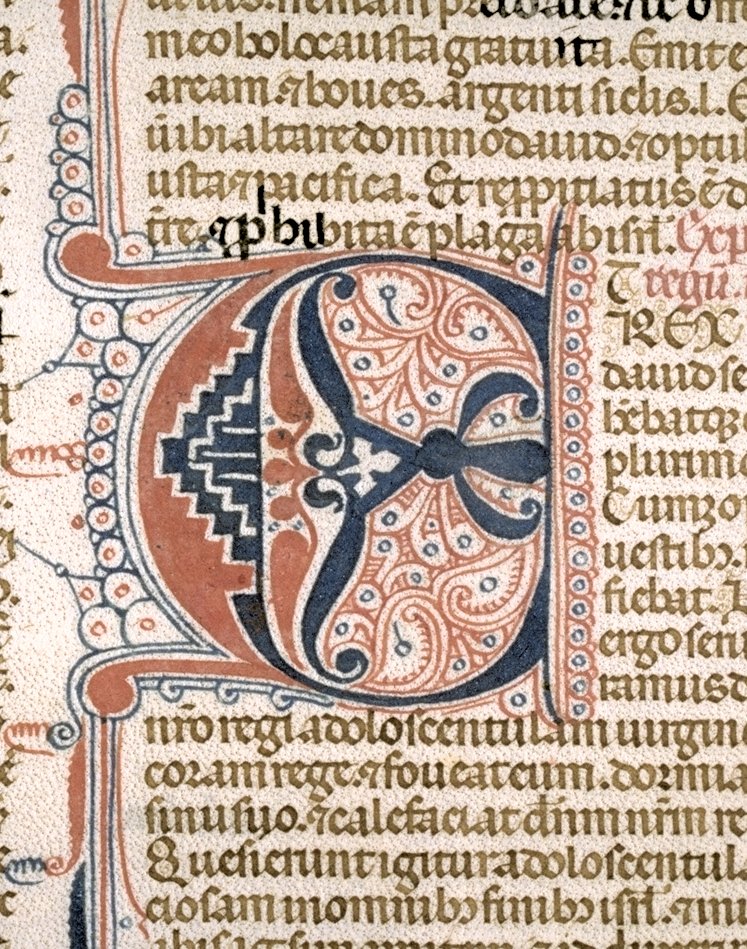 meo holocausta gratuita. Emit e
aream. ⁊ boues. argenti siclis .l. E
ibi altare domino dauid. ⁊ optul
usta ⁊ pacifica. Et rep̱pitiatus ē d
tre. ⁊ ꝓhibita ē plaga ab isrl̄. Exp
regū.
REX
dauid se
bebatqꝫ
plurimo
Cumqꝫ o
uestibꝫ
fiebat.
ergo seru
ramus d
nr̄o regi adoloscentulam uirgin
coram rege. ⁊ foueat eum. dormia
sinu suo. ⁊ calefaciat dn̄m nr̄m re
Quesierunt igitur adoloscentul
ciosam in omnibꝫ finibꝫ isrl̄. ⁊ inu